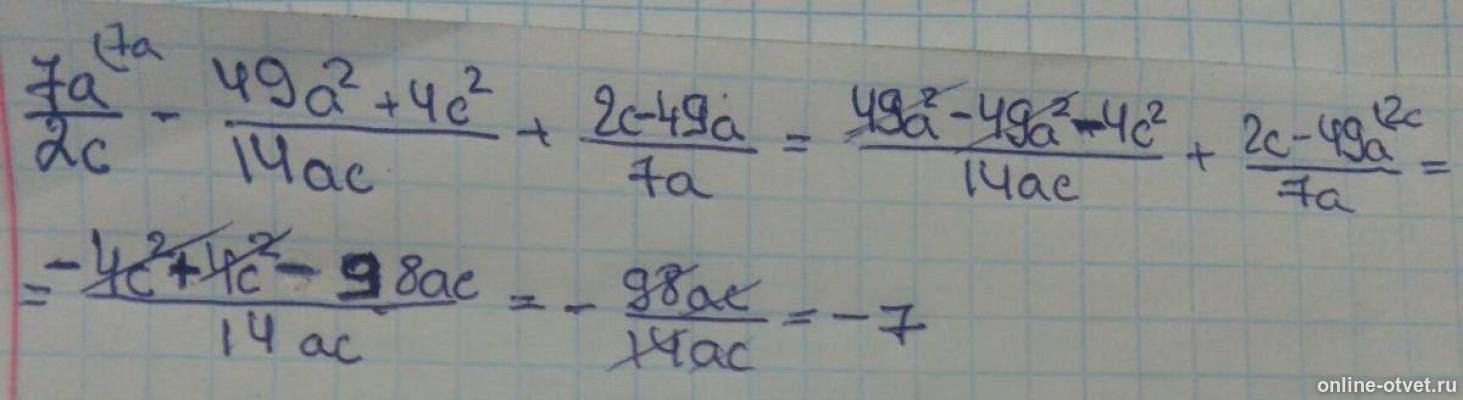 7a(7a/2c - 49a²+4c²/14ac + 2c-49a/7a = 49a²-49a²-4c²/14ac + 2c-49a(2c/7a =
= -4c²+4c²-98ac/14ac = - 98ac/14ac = -7
online-otvet.ru